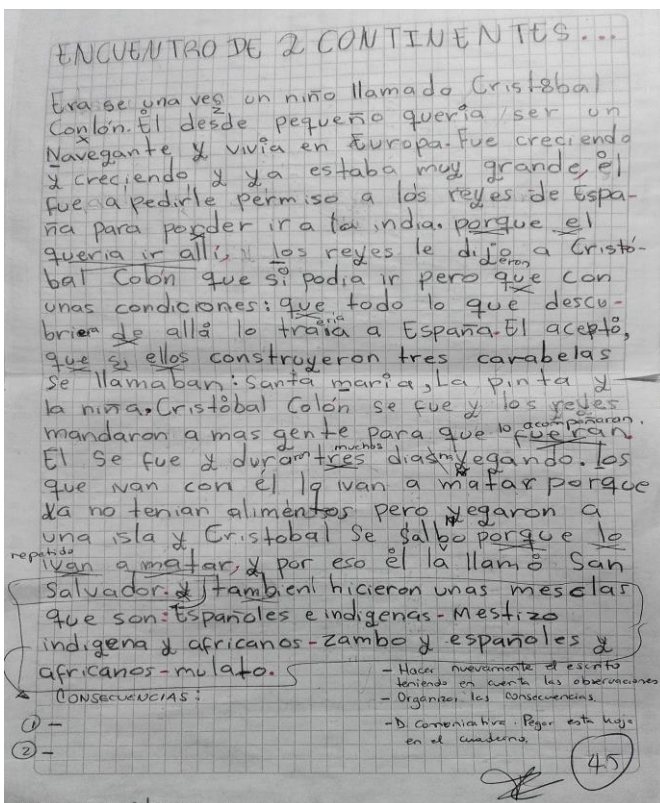 ENCUENTRO DE 2 CONTINENTES...
Erase una ves un niño llamado Cristóbal
Conlón. Él desde pequeño queria ser un
Navegante y vivia en Europa. Fue creciendo
y creciendo y ya estaba muy grande, él
fue a pedirle permiso a los reyes de Espa-
ña para poder ir a la india. porque el
queria ir alli, los reyes le dijeron a Cristó-
bal Colón que si podia ir pero que con
unas condiciones: que todo lo que descu-
briera de allá lo traeria a España. El acepto,
que si ellos construyeron tres carabelas
se llamaban: Santa maria, La pinta y
la niña. Cristóbal Colón se fue y los reyes
mandaron a mas gente para que lo acompañaran. fueran
El se fue y duram tres muchos dias vegando. los
que ivan con él lo ivan a matar porque
ya no tenian alimentos pero yegaron a
una isla y Cristobal se salbo porque lo
repetido
ivan a matar, y por eso él la llamó San
Salvador. y tambien hicieron unas mesclas
que son: Españoles e indigenas - Mestizo
indigena y africanos - zambo y españoles y
africanos - mulato.
CONSECUENCIAS:
① -
② -
- Hacer nuevamente el escrito
teniendo en cuenta las observaciones
- Organizar las consecuencias.
- D. comunicativa. Pegar esta hoja
en el cuaderno.
45